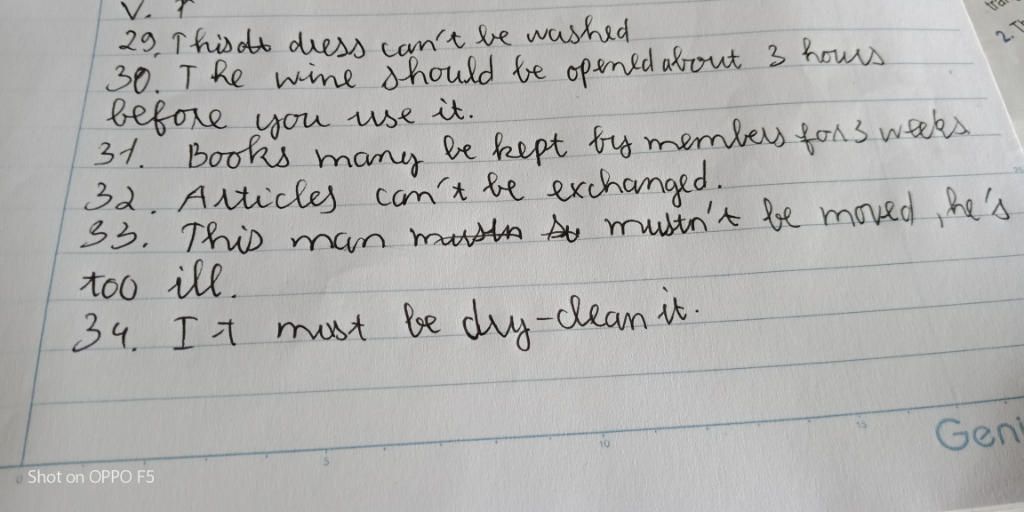 V.
29. This dress can't be washed
30. The wine should be opened about 3 hours
before you use it.
31. Books many be kept by members for 3 weeks
32. Articles can't be exchanged.
33. This man mustn mustn't be moved, he's
too ill.
34. It must be dry-clean it.
2.
5
10
15
Geni
Shot on OPPO F5